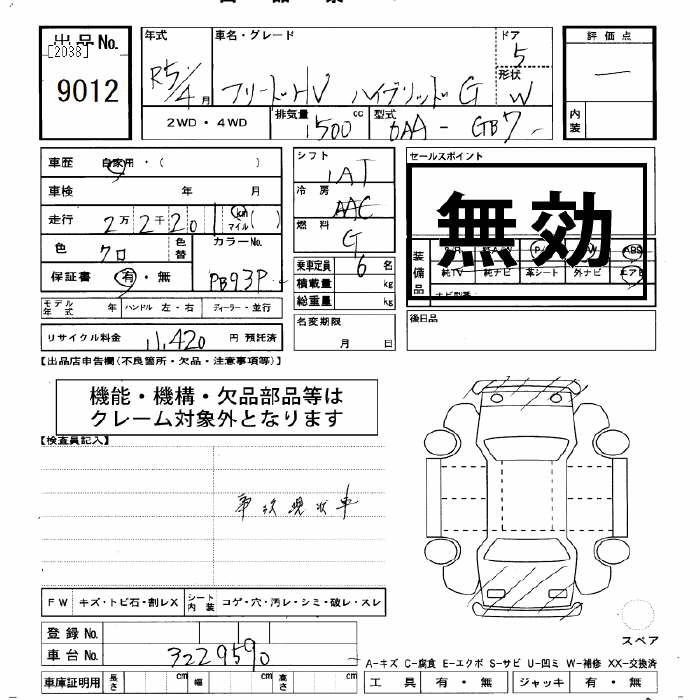 出品No. [2038] 9012
年式 車名・グレード ドア 評価点
R5/4月 フリードHV ハイブリッドG 5 形状 W
2WD・4WD 排気量 1500 cc 型式 6AA - GB7 内装
車歴 自家用・( )
シフト IAT
セールスポイント
車検 年 月
冷房 AAC
走行 2万2千201 km マイル ( )
燃料 G
無効
色 クロ 色替 カラーNo. PB93P
保証書 有・無
乗車定員 6 名
積載量 kg
総重量 kg
装備品 P/W ABS
純TV 純ナビ 革シート 外ナビ エアB
モデル年式 年 ハンドル 左・右 ディーラー・並行
リサイクル料金 11,420 円 預託済
名変期限 月 日
後日品
【出品店申告欄(不良箇所・欠品・注意事項等)】
機能・機構・欠品部品等は
クレーム対象外となります
【検査員記入】
事故現状車
FW キズ・トビ石・割レX シート内装 コゲ・穴・汚レ・シミ・破レ・スレ
登録No.
車台No. 3229590
スペア
A-キズ C-腐食 E-エクボ S-サビ U-凹ミ W-補修 XX-交換済
車庫証明用 長さ cm 幅 cm 高さ cm 工具 有・無 ジャッキ 有・無